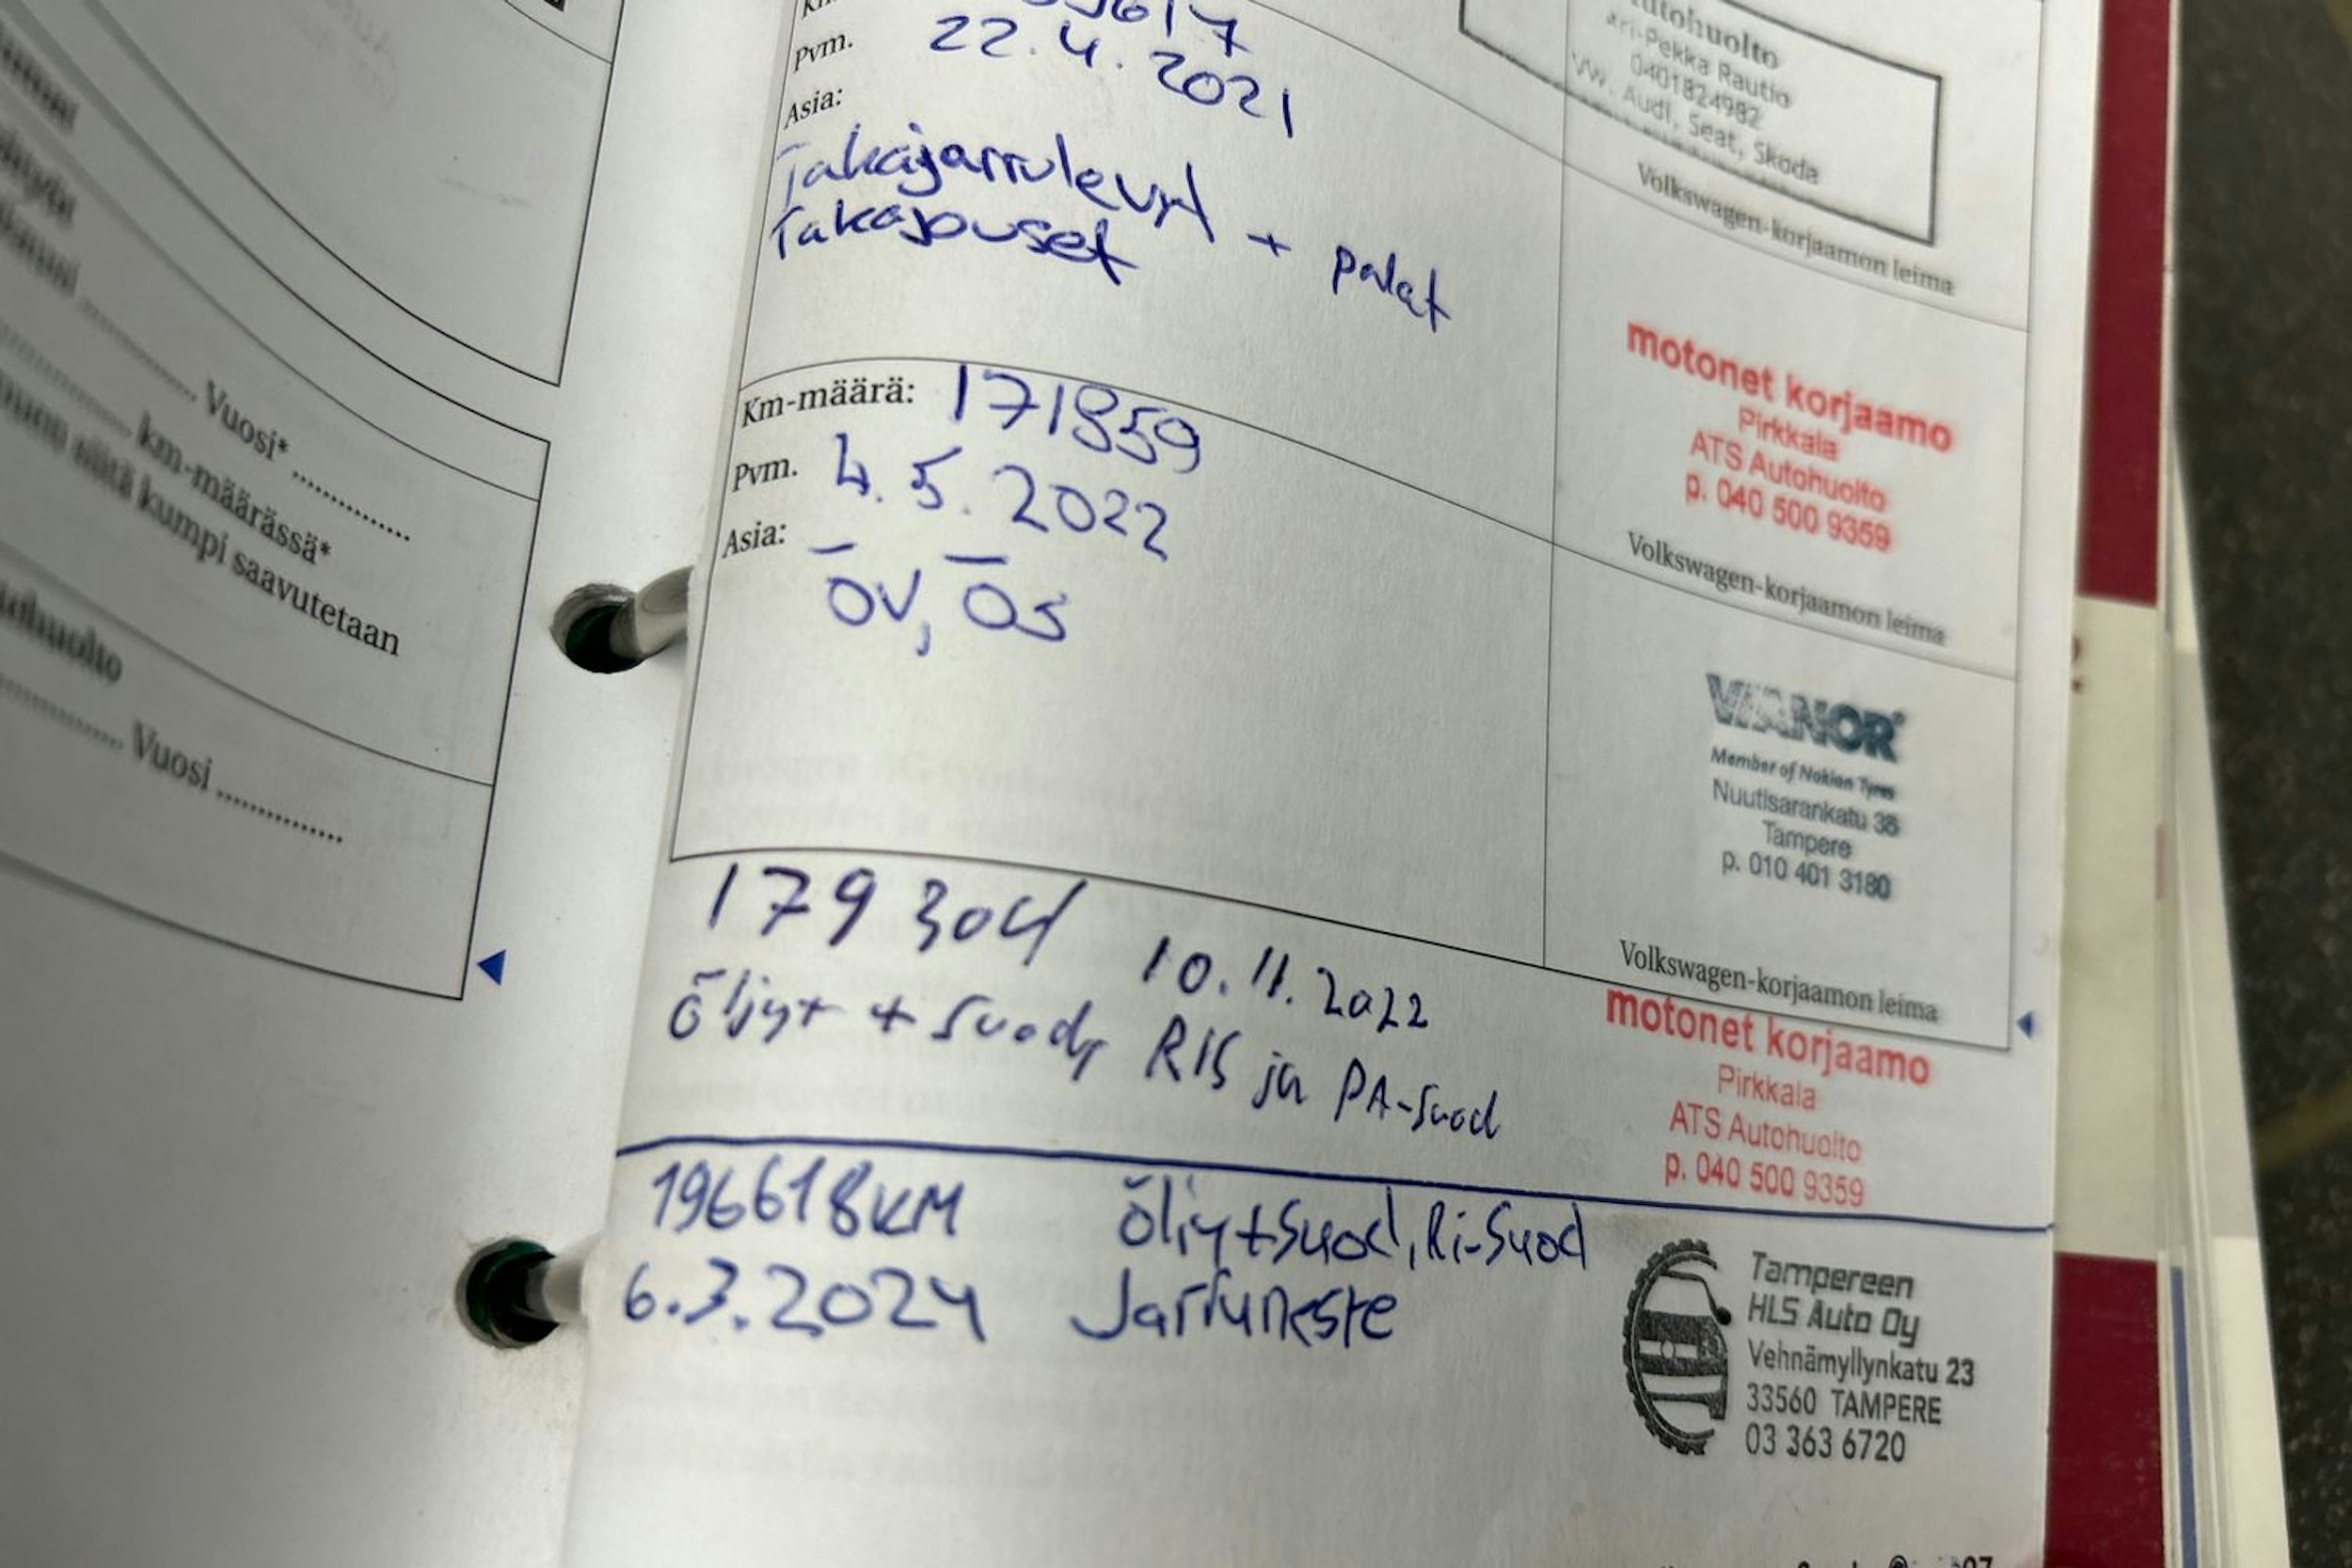 Vuosi*
km-määrässä*
siitä kumpi saavutetaan
Vuosi
Pvm. 22.4.2021
Asia:
Takajarrulevyt + palat
Takajouset
Autohuolto
Ari-Pekka Rautio
0401824982
VW. Audi, Seat, Skoda
Volkswagen-korjaamon leima
Km-määrä: 171859
Pvm. 4.5.2022
Asia:
ÖV, ÖS
motonet korjaamo
Pirkkala
ATS Autohuolto
p. 040 500 9359
Volkswagen-korjaamon leima
VIANOR
Member of Nokian Tyres
Nuutisarankatu 35
Tampere
p. 010 401 3180
Volkswagen-korjaamon leima
179 304 10.11.2022
Öljyt + suod, RIS ja PA-suod
motonet korjaamo
Pirkkala
ATS Autohuolto
p. 040 500 9359
196618KM öljyt+suod, Ri-Suod
6.3.2024 Jarruneste
Tampereen
HLS Auto Oy
Vehnämyllynkatu 23
33560 TAMPERE
03 363 6720